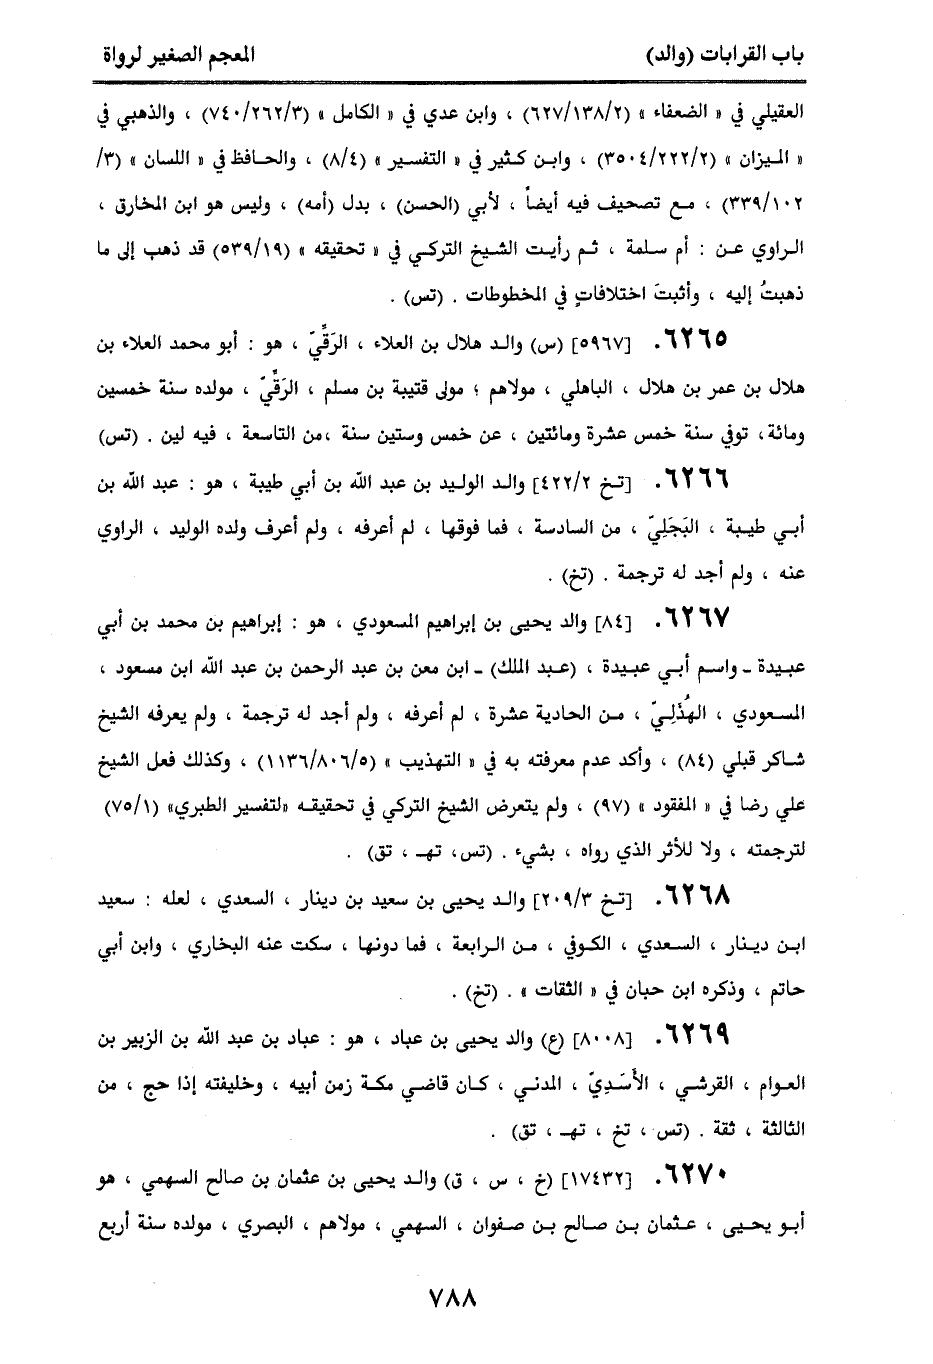 باب القرابات (والد) المعجم الصغير لرواة
العقيلي في « الضعفاء » (٦٢٧/١٣٨/٢) ، وابن عدي في « الكامل » (٧٤٠/٢٦٢/٣) ، والذهبي في
« الميزان » (٣٥٠٤/٢٢٢/٢) ، وابن كثير في « التفسير » (٨/٤) ، والحافظ في « اللسان » (٣/
٣٣٩/١٠٢) ، مع تصحيف فيه أيضاً ، لأبي (الحسن) ، بدل (أمه) ، وليس هو ابن المخارق ،
الراوي عن : أم سلمة ، ثم رأيت الشيخ التركي في « تحقيقه » (٥٣٩/١٩) قد ذهب إلى ما
ذهبتُ إليه ، وأثبتَ اختلافاتٍ في المخطوطات . (تس) .
٦٢٦٥. [٥٩٦٧] (س) والد هلال بن العلاء ، الرَقِّيّ ، هو : أبو محمد العلاء بن
هلال بن عمر بن هلال ، الباهلي ، مولاهم ؛ مولى قتيبة بن مسلم ، الرَقِّيّ ، مولده سنة خمسين
ومائة، توفي سنة خمس عشرة ومائتين ، عن خمس وستين سنة ،من التاسعة ، فيه لين . (تس)
٦٢٦٦. [تخ ٤٢٢/٢] والد الوليد بن عبد الله بن أبي طيبة ، هو : عبد الله بن
أبي طيبة ، البَجَلِيّ ، من السادسة ، فما فوقها ، لم أعرفه ، ولم أعرف ولده الوليد ، الراوي
عنه ، ولم أجد له ترجمة . (تخ) .
٦٢٦٧. [٨٤] والد يحيى بن إبراهيم المسعودي ، هو : إبراهيم بن محمد بن أبي
عبيدة ـ واسم أبي عبيدة ، (عبد الملك) ـ ابن معن بن عبد الرحمن بن عبد الله ابن مسعود ،
المسعودي ، الهُذَلِيّ ، من الحادية عشرة ، لم أعرفه ، ولم أجد له ترجمة ، ولم يعرفه الشيخ
شاكر قبلي (٨٤) ، وأكد عدم معرفته به في « التهذيب » (١١٣٦/٨٠٦/٥) ، وكذلك فعل الشيخ
علي رضا في « المفقود » (٩٧) ، ولم يتعرض الشيخ التركي في تحقيقه «لتفسير الطبري» (٧٥/١)
لترجمته ، ولا للأثر الذي رواه ، بشيء . (تس، تهـ ، تق) .
٦٢٦٨. [تخ ٢٠٩/٣] والد يحيى بن سعيد بن دينار ، السعدي ، لعله : سعيد
ابن دينار ، السعدي ، الكوفي ، من الرابعة ، فما دونها ، سكت عنه البخاري ، وابن أبي
حاتم ، وذكره ابن حبان في « الثقات » . (تخ) .
٦٢٦٩. [٨٠٠٨] (ع) والد يحيى بن عباد ، هو : عباد بن عبد الله بن الزبير بن
العوام ، القرشي ، الأَسَدِيّ ، المدني ، كان قاضي مكة زمن أبيه ، وخليفته إذا حج ، من
الثالثة ، ثقة . (تس ، تخ ، تهـ ، تق) .
٦٢٧٠. [١٧٤٣٢] (خ ، س ، ق) والد يحيى بن عثمان بن صالح السهمي ، هو
أبو يحيى ، عثمان بن صالح بن صفوان ، السهمي ، مولاهم ، البصري ، مولده سنة أربع
٧٨٨